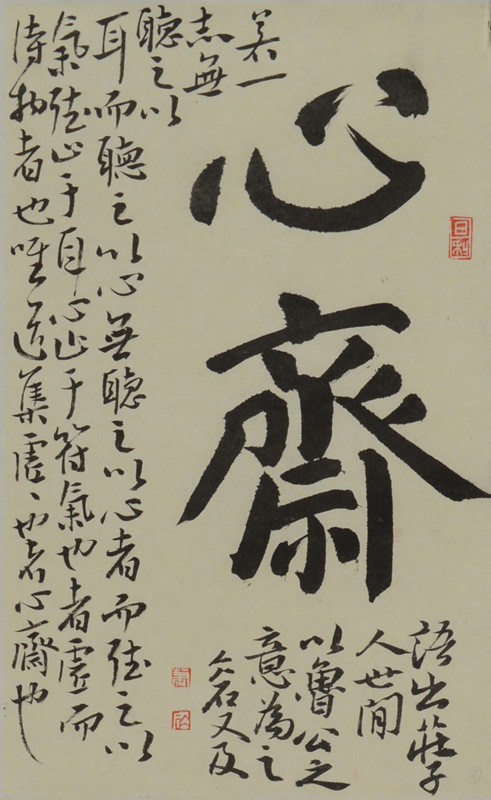 心齋
若一
志無
聽之以
耳而聽之以心無聽之以心者而聽之以
氣聽止于耳心止于符氣也者虛而
待物者也唯道集虛〻也者心齋也
語出莊子
人世間
以魯公之
意為之
又及
日利